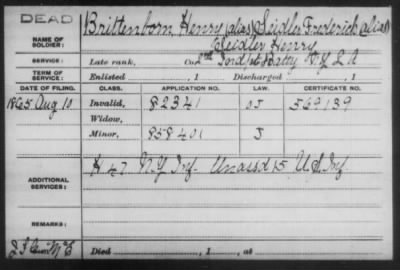 DEAD
Brittenborn Henry (alias) Seidler Frederick (alias)
NAME OF SOLDIER:
Seidler Henry
SERVICE:
Late rank, Co. Batty N.Y. L A
TERM OF SERVICE:
Enlisted , 1 Discharged , 1
DATE OF FILING. CLASS. APPLICATION NO. LAW. CERTIFICATE NO.
1865 Aug 10 Invalid, 82341 569139
Widow,
Minor, 858401 J
ADDITIONAL SERVICES:
H 47 N.Y. Inf. Unassd 15 U.S. Inf.
REMARKS:
Died , 1 , at